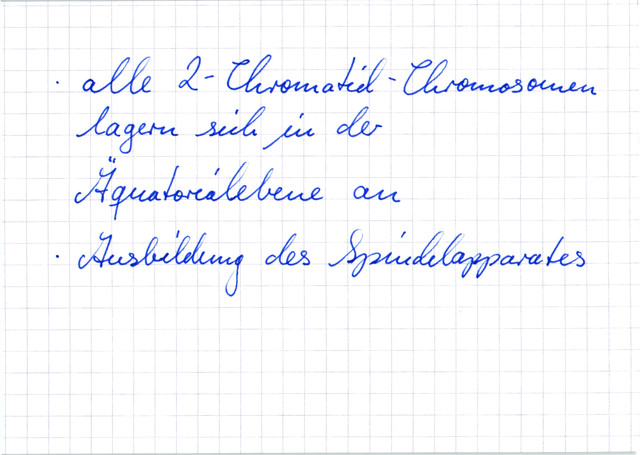 · alle 2-Chromatid-Chromosomen
lagern sich in der
Äquatorialebene an
· Ausbildung des Spindelapparates